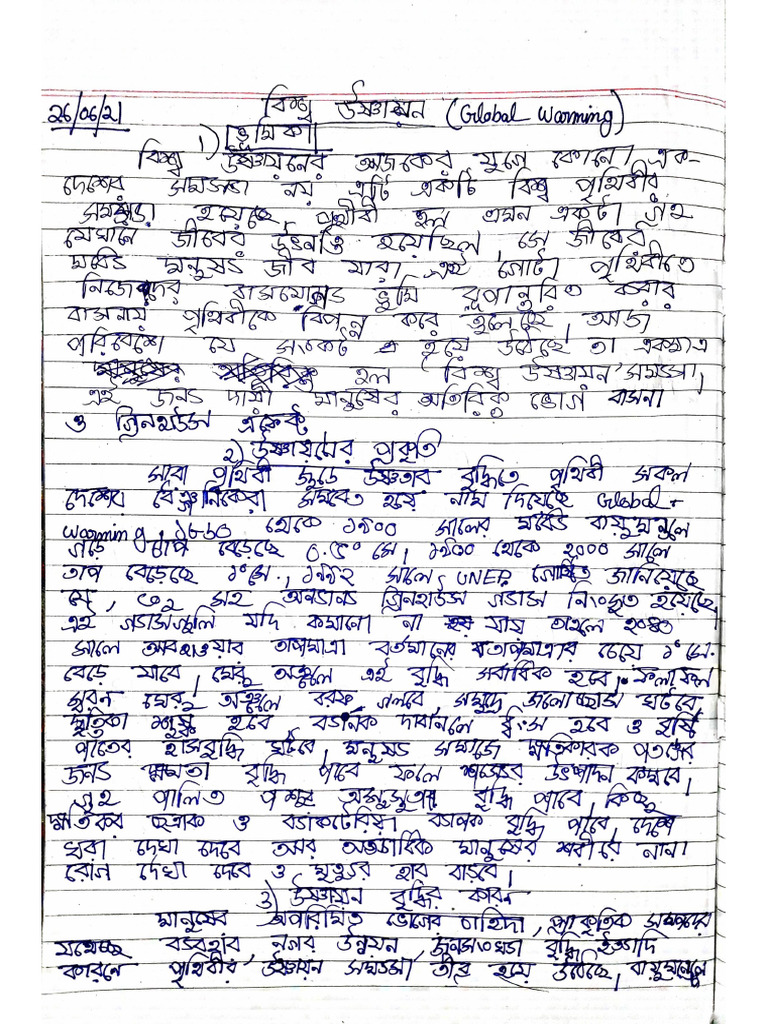 26/06/21
বিশ্ব উষ্ণায়ন (Global Warming)
১) ভূমিকা
বিশ্ব উষ্ণায়নের আজকের যুগে কোনো এক-
দেশের সমস্যা নয় এটি একটি বিশ্ব পৃথিবীর
সমস্যা হয়েছে, পৃথিবী হল এমন একটা গ্রহ
যেখানে জীবের উৎপত্তি হয়েছিল, সে জীবের
মধ্যেই মানুষ্য জীব যারা এই গোটা পৃথিবীতে
নিজেদের বাসযোগ্য ভূমি রূপান্তরিত করার
বাসনায় পৃথিবীকে বিপন্ন করে তুলেছে, আজ
পরিবেশে যে সংকট হয়ে উঠেছে তা একমাত্র
হল বিশ্ব উষ্ণায়ন সমস্যা,
এই জন্য দায়ী মানুষের অতিরিক্ত ভোগ বাসনা
ও গ্রিনহাউস এফেক্ট
২) উষ্ণায়নের প্রকৃতি
সারা পৃথিবী জুড়ে উষ্ণতার বৃদ্ধিতে পৃথিবী সকল
দেশের বৈজ্ঞানিকেরা সমবেত হয়ে নাম দিয়েছে Global
Warming, ১৮৮০ থেকে ১৯০০ সালের মধ্যেই বায়ুমন্ডলে
গড়ে তাপ বেড়েছে ০.৫° সে, ১৯০০ থেকে ২০০০ সালে
তাপ বেড়েছে ১° সে., ১৯৯২ সালে, UNEP জানিয়েছে
সহ অন্যান্য গ্রিনহাউস গ্যাস নিঃসৃত হয়েছে,
এই গ্যাসগুলি যদি কমানো না যায় তাহলে
সালে আবহাওয়ার তাপমাত্রা বর্তমানের তাপমাত্রার চেয়ে ১° সে.
বেড়ে যাবে, মেরু অঞ্চলে এই বৃদ্ধি সর্বাধিক হবে। ফলাফল
স্বরূপ মেরু অঞ্চলে বরফ গলবে, সমুদ্রে জলোচ্ছাস ঘটবে,
মৃত্তিকা শুষ্ক হবে ব্যাপক দাবানলে ধ্বংস হবে ও বৃষ্টি
পাতের হ্রাসবৃদ্ধি ঘটবে, মনুষ্য সমাজে ক্ষতিকারক পতঙ্গের
জন্য ক্ষমতা বৃদ্ধি পাবে ফলে শস্যের উৎপাদন কমবে।
গৃহ পালিত পশুর অসুস্থতা বৃদ্ধি পাবে, কিছু
ক্ষতিকর ছত্রাক ও ব্যাকটেরিয়া ব্যাপক বৃদ্ধি পাবে, দেশে
খরা দেখা দেবে আর অত্যাধিক মানুষের শরীরে নানা
রোগ দেখা দেবে ও মৃত্যুর হার বাড়বে।
৩) উষ্ণায়ন বৃদ্ধির কারন
মানুষের অপরিমিত ভোগের চাহিদা, প্রাকৃতিক সম্পদের
যথেচ্ছ ব্যবহার, নগর উন্নয়ন, জনসংখ্যা বৃদ্ধি ইত্যাদি
কারনে পৃথিবীর উষ্ণায়ন সমস্যা তীব্র হয়ে উঠেছে, বায়ুমন্ডলে